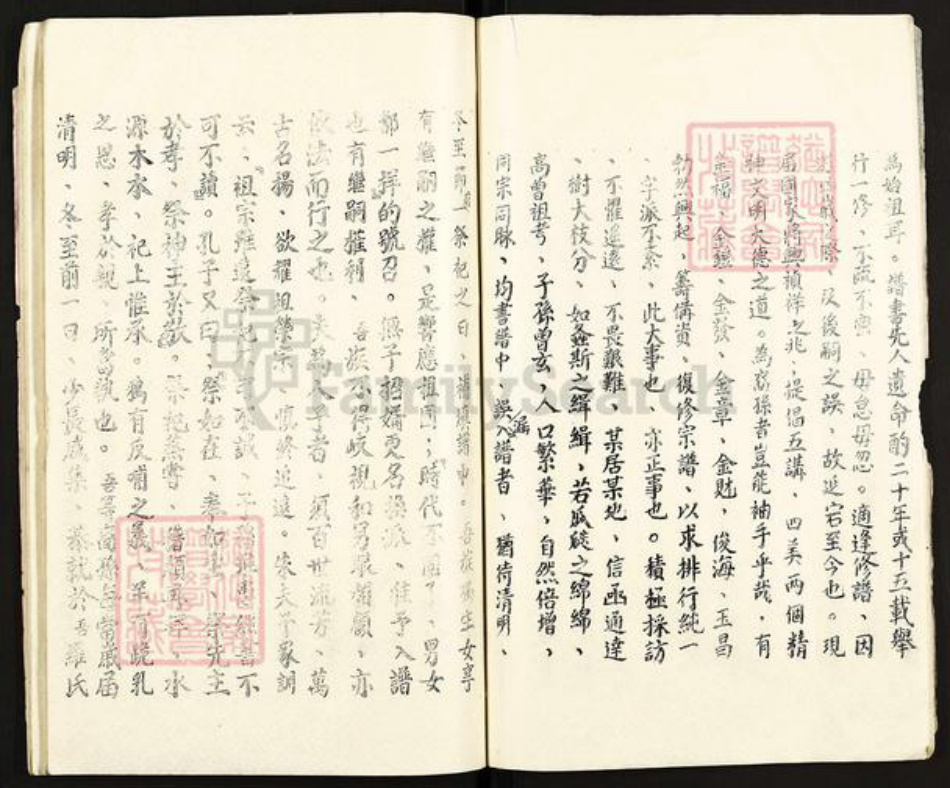 為始祖耳。譜書先人遺命酌二十年或十五載舉
行一修、不疏不密、毋怠毋忽。適逢修譜、因
際、及後嗣之誤、故延宕至今也。現
屆國家將興禎祥之兆、提倡五講、四美兩個精
神文明大德之道。為裔孫者豈能袖手乎哉、有
金鑑、金發、金章、金財、俊海、玉昌
勃然興起、籌備資、復修宗譜、以求排行統一
、字派不紊、此大事也、亦正事也。積極採訪
、不憚遙遠、不畏艱難、某居某地、信函通達
、樹大枝分、如螽斯之緝緝、若瓜瓞之綿綿、
高曾祖考、子孫曾玄、人口繁華、自然倍增、
同宗同脉、均書譜中、誤漏入譜者、猶待清明、
冬至前一祭祀之日、補填譜中。吾族獨生女享
有繼嗣之權、是響應祖國;時代不同了男女
都一樣的號召。無子招婿更名換派、准予入譜
也有繼嗣權利、吾族不得歧視和另眼相顧、亦
依法而行之也。夫為人子者、須百世流芳、萬
古名揚、欲耀祖榮宗、慎終追遠。朱夫子家訓
云、祖宗雖遠祭祀不可不誠、子孫雖愚經書不
可不讀。孔子又曰:祭如在、孝如事、祭先主
於孝、祭神主於敬。祭祀蒸嘗、水
源木本、祀上惟承。鴉有反哺之義、羊有跪乳
之恩、孝於親、所當執也。吾等裔孫每當歲屆
清明、冬至前一日、少長咸集、恭就於吾羅氏
FamilySearch